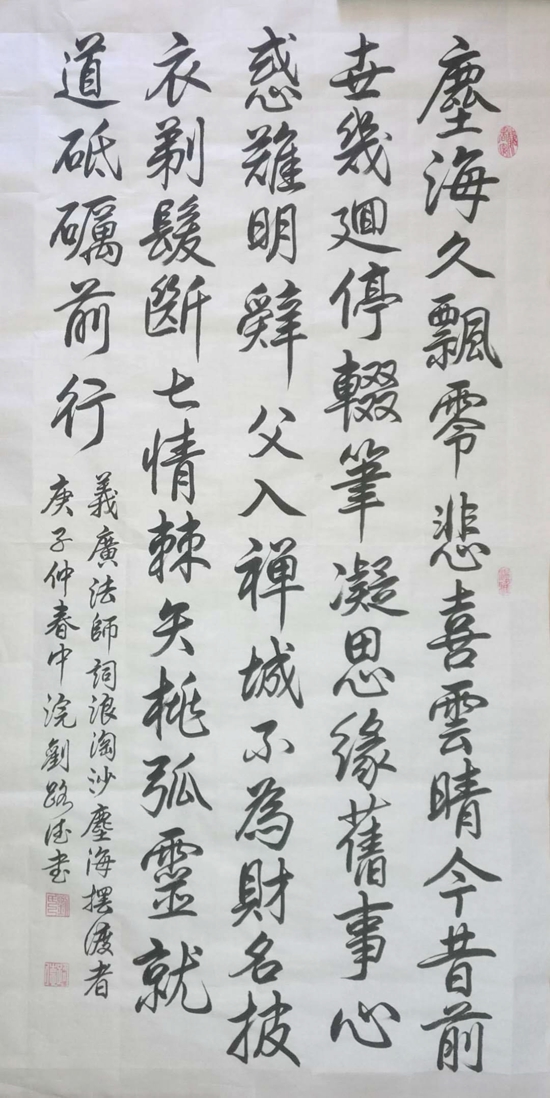 塵海久飄零悲喜雲晴今昔前
世幾廻停輟筆凝思緣舊事心
惑難明辭父入禅城不為財名披
衣剃髮斷七情棘矢桃弧靈就
道砥礪前行
義廣法師詞浪淘沙塵海摆渡者
庚子仲春中浣劉路德书